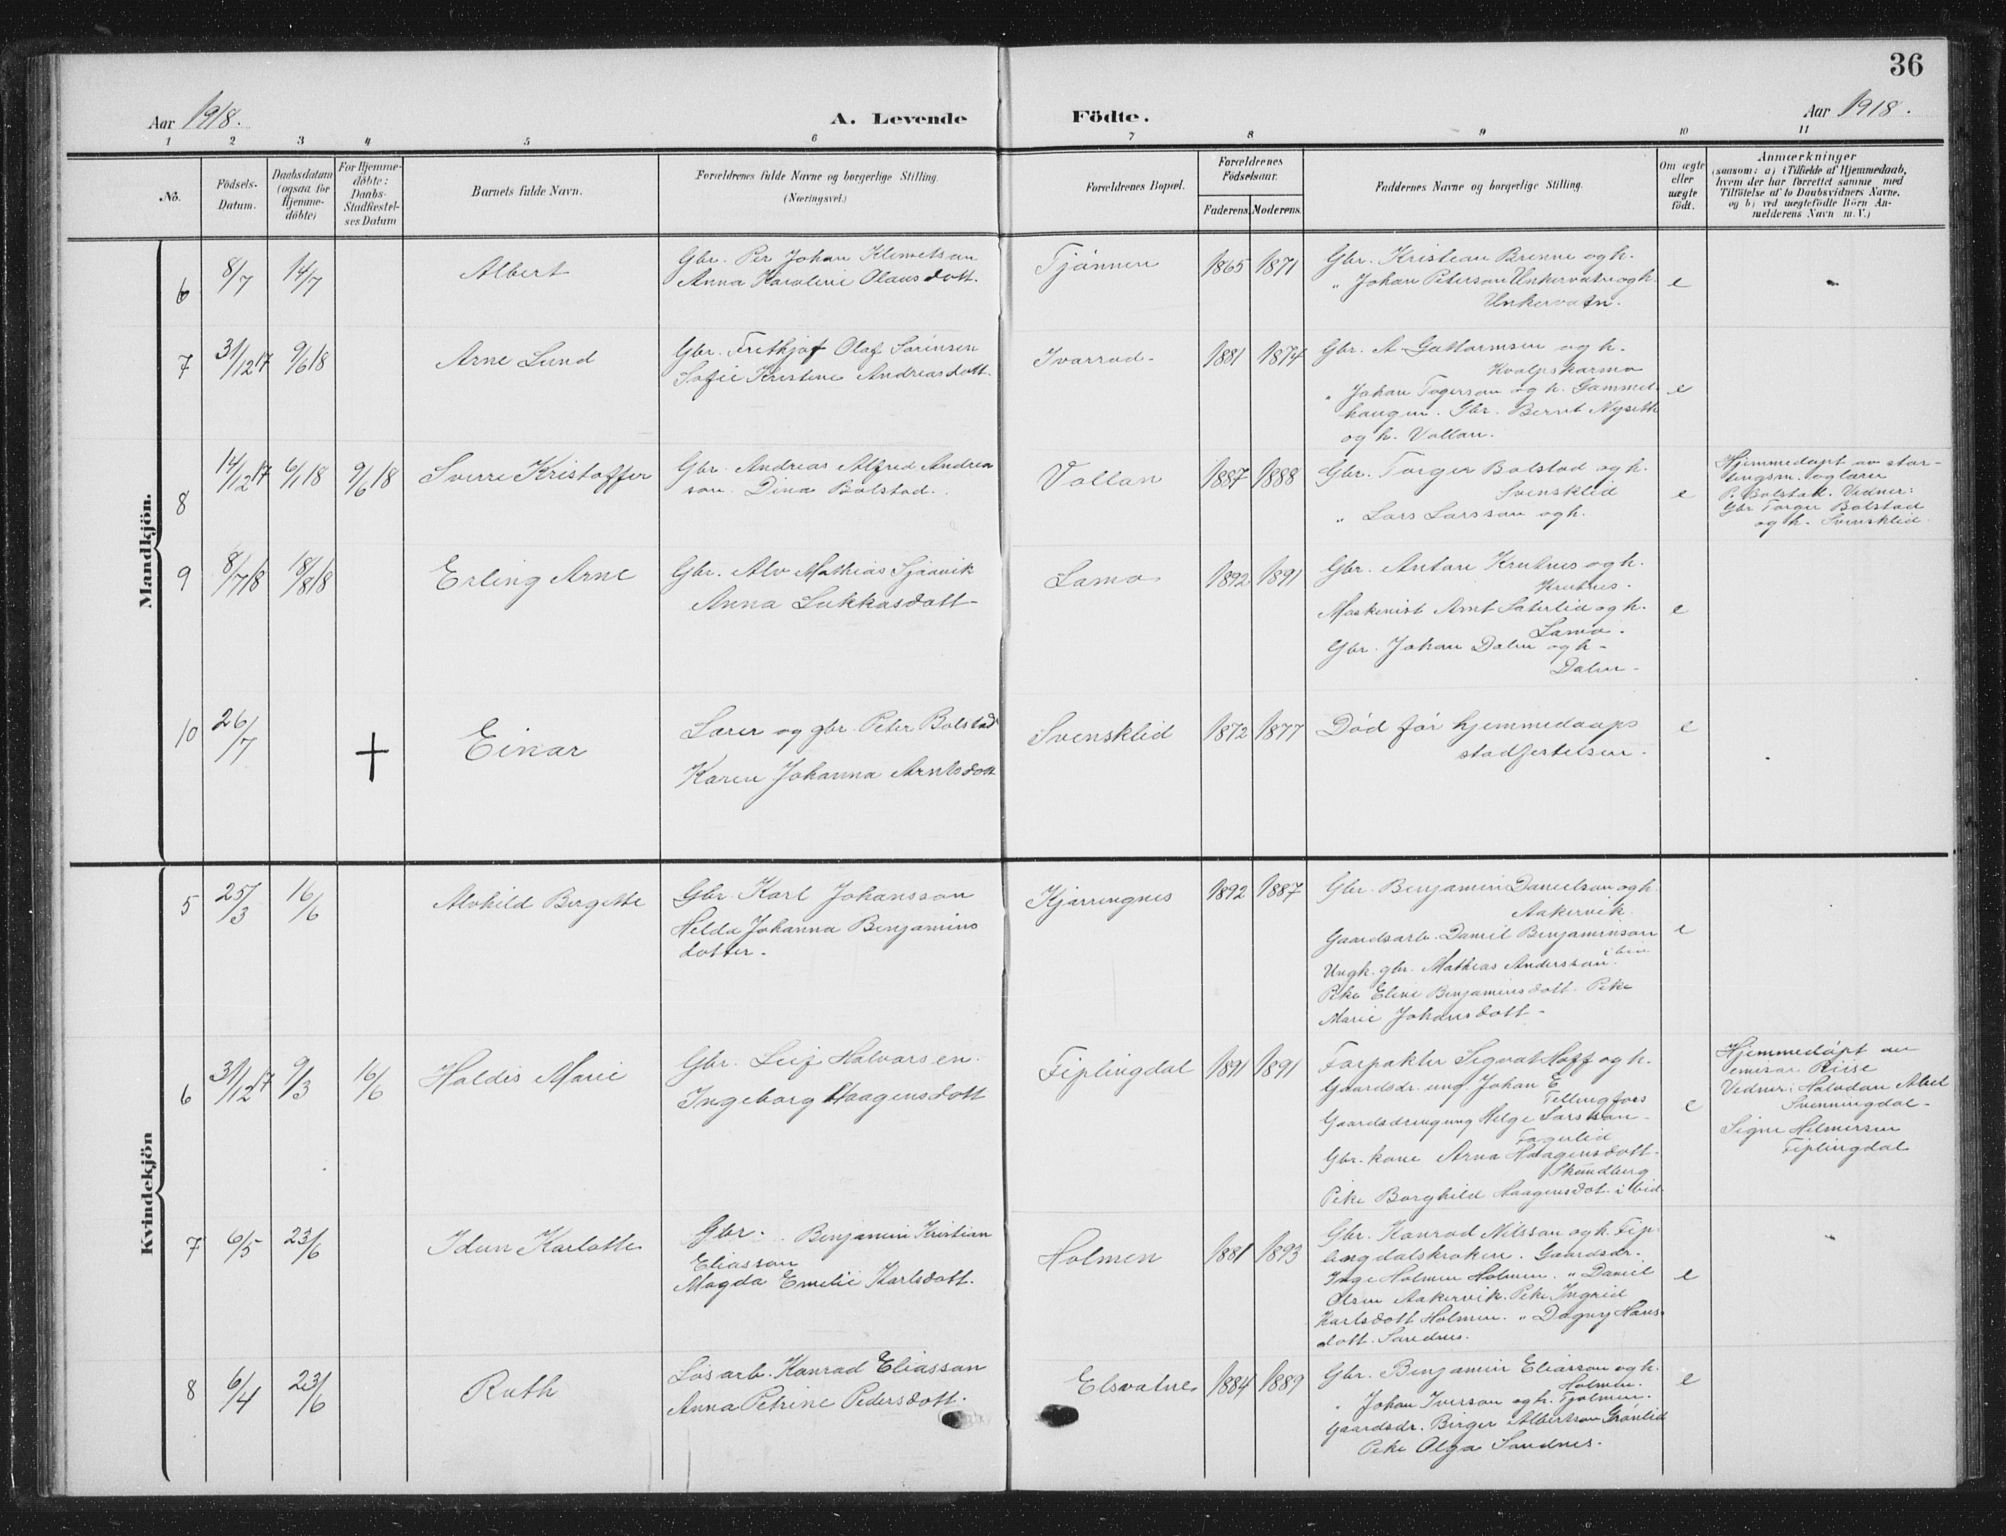 36
Aar 1918.
A. Levende Födte.
Aar 1918.
1 2 3 4 5 6 7 8 9 10 11
No.
Födsels-
Datum.
Daabsdatum
(ogsaa for
Hjemme-
döbte)
For Hjemme-
döbte:
Daabs-
Stadfæstel-
ses Datum
Barnets fulde Navn.
Forældrenes fulde Navne og borgerlige Stilling
(Næringsvei.)
Forældrenes Bopæl.
Forældrenes
Födselsaar.
Faderens. Moderens.
Faddernes Navne og borgerlige Stilling.
Om ægte
eller
uægte
födt.
Anmærkninger
(saasom: a) i Tilfælde af Hjemmedaab,
hvem der har forrettet samme, med
Tilföielse af to Daabsvidners Navne,
og b) ved uægtefödte Börn An-
melderens Navn m. V.)
Mandkjön.
6 8/7 14/7 Albert
Gbr. Per Johan Klemetsan
Anna Karoline Olausdott.
Tjönnen 1865 1871
Gbr. Kristian Brenne og h.
" Johan Peterson Unkervatn og h.
Unkervatn.
e
7 31/12 17 9/6 18 Arne Lund
Gbr. Frithjof Olaf Sørensen
Sofie Kristine Andreasdott.
Ivarrud 1881 1874
Gbr. A. Guttormsen og h.
Kvalpskarmo
" Johan Togerson og h. Gammel-
haugen. Gbr. Bernt Nyseth
og h. Vollan.
e
8 14/12 17 6/1 18 9/6 18 Sverre Kristoffer
Gbr. Andreas Alfred Andrea
son. Dina Bolstad.
Vollan 1887 1888
Gbr. Torger Bolstad og h.
Svensklid
" Lars Larsson og h.
e
Hjemmedøpt av stor-
tingsm. og lærer
P. Bolstad. Vidner:
Gbr Torger Bolstad
og h. Svensklid.
9 8/7 18 18/8 18 Erling Arne
Gbr. Alv Mathias Sjaavik
Anna Lukkasdott
Lamo 1892 1891
Gbr. Antan Krutnes og h.
Krutnes.
Maskinist Arnt Säterlid og h.
Lamo.
Gbr. Johan Dalen og h.
Dalen.
e
10 26/7 † Einar
Lærer og gbr. Peter Bolstad
Karen Johanna Arntsdott
Svensklid 1872 1877
Død før hjemmedaaps
stadfestelsen.
e
Kvindekjön
5 25/3 16/6 Alvhild Bergitte
Gbr. Karl Johansson
Helda Johanna Benjamins
dotter.
Kjærringnes 1892 1887
Gbr. Benjamin Danielson og h.
Aakervik
Gaardsarb. Daniel Benjaminson
ibid
Ungk. gbr. Mathias Andersson
Pike Eline Benjaminsdott. Pike
Marie Johansdott.
e
6 31/12 17 9/3 16/6 Haldis Marie
Gbr. Leif Halvorsen.
Ingeborg Haagensdott
Fiplingdal 1891 1891
Forpakter Sigvat Hoff og h.
Gaardsdr. ung. Johan E.
Fellingfors
Gaardsdreng ung Helge Larsson
Fagerlid
Gbr. kone Arna Haagensdott.
Skundberg
Pike Borghild Haagensdot. ibid.
e
Hjemmedøpt av
emisær Riise
Vidner: Halvdan Abel
Svenningdal.
Signe Helmersen
Fiplingdal
7 6/5 23/6 Idun Karlotte
Gbr. Benjamin Kristian
Eliasson
Magda Emelie Karlsdott.
Holmen 1881 1893
Gbr. Konrad Nilsson og h. Fip-
lingdalskroken. Gaardsdr.
Inge Holmen Holmen. " Daniel
Olsen Aakervik. Pike Ingrid
Karlsdott Holmen. " Dagny Hans
dott. Sandnes.
e
8 6/4 23/6 Ruth
Løsarb. Konrad Eliassan
Anna Petrine Pedersdott.
Elsvatnet 1884 1889
Gbr. Benjamin Eliasson og h.
Holmen.
" Johan Iverson og h. Fjolmen.
Gaardsdr. Birger Albertson Grönlid
Pike Olga Sandnes.
e